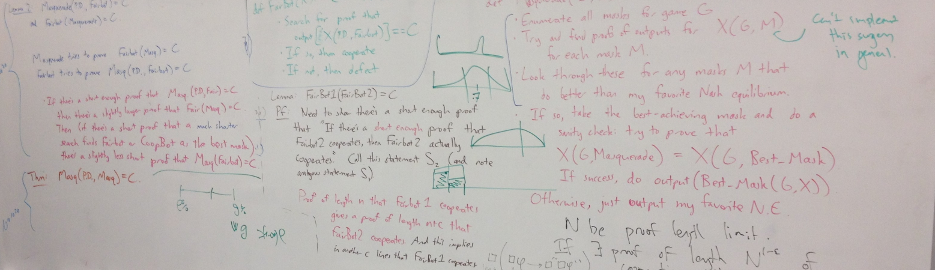 Lemma 2 Masquerade(P.D, Fairbot) = C
and Fairbot(Masquerade) = C
Masquerade tries to prove Fairbot(Masq) = C
Fairbot tries to prove Masq(P.D, Fairbot) = C
If there's a short enough proof that Masq(P.D, Fair) = C
then there's a slightly longer proof that Fair(Masq) = C
Then (if there's a short proof that a much shorter
search finds Fairbot or CoopBot as the best mask)
there's a slightly less short proof that Masq(Fairbot) = C
Thm: Masq(P.D, Masq) = C
def FairBot
• Search for proof that
output[X(P.D, FairBot)] == C
• If so, then cooperate
• If not, then defect
Lemma: FairBot1(FairBot2) = C
Pf: Need to show there's a short enough proof
that "If there's a short enough proof that
Fairbot2 cooperates, then Fairbot2 actually
cooperates." Call this statement S2 (and note
analogous statement S1)
Proof of length n that Fairbot 1 cooperates
gives a proof of length n+c that
FairBot2 cooperates. And this implies
in another c lines that FairBot1 cooperates
def
• Enumerate all masks for game G
• Try and find proofs of outputs for X(G, M)
for each mask M.
• Look through these for any masks M that
do better than my favorite Nash equilibrium.
• If so, take the best-achieving mask and do a
sanity check: try to prove that
X(G, Masquerade) = X(G, Best_Mask)
If success, do output(Best_Mask(G,X)).
Otherwise, just output my favorite N.E.
Can't implement
this
in general.
N be proof length limit.
If ∃ proof of length N^{1-ε}